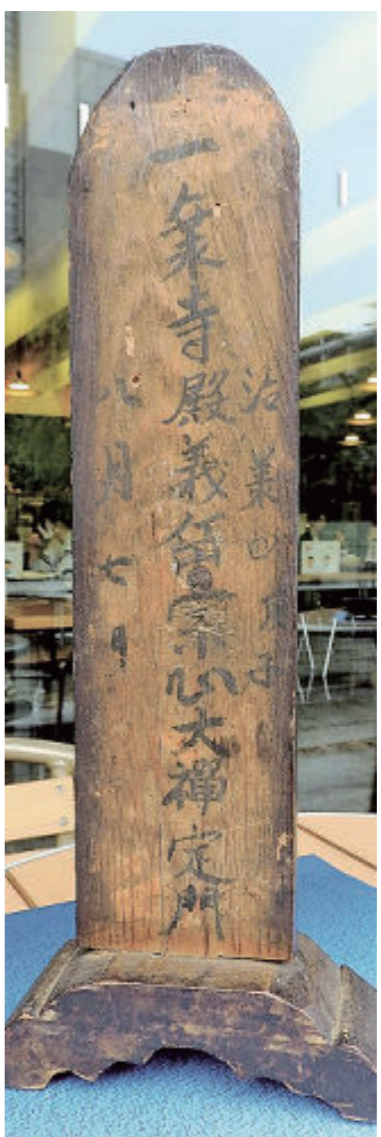 治四庚子
一寺殿義宗心大禅定門
八月七日